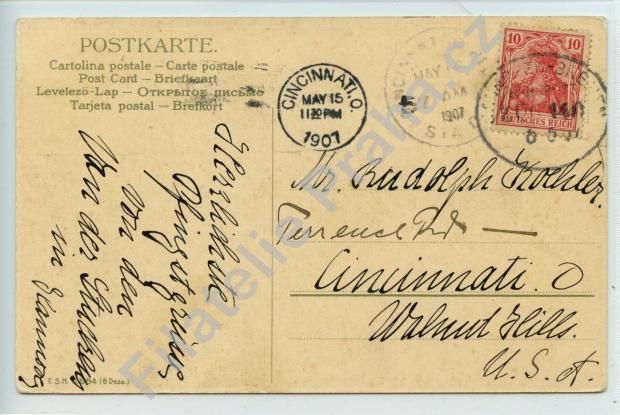 POSTKARTE.
Cartolina postale – Carte postale
Post Card – Briefkaart
Levelező-Lap – Открытое письмо
Tarjeta postal – Brefkort
CINCINNATI, O.
MAY 15
11 30 PM
1907
MAY
1907
STA
10 10
DEUTSCHES REICH
Herzlichste
Pfingstgrüsse
Von den
Von der
in
Mr. Rudolph Koehler
Terrence Rd. —
Cincinnati. O
Walnut Hills.
U. S. A.
T. S. N.
(6 Dess.)
Filatelie Praha.cz